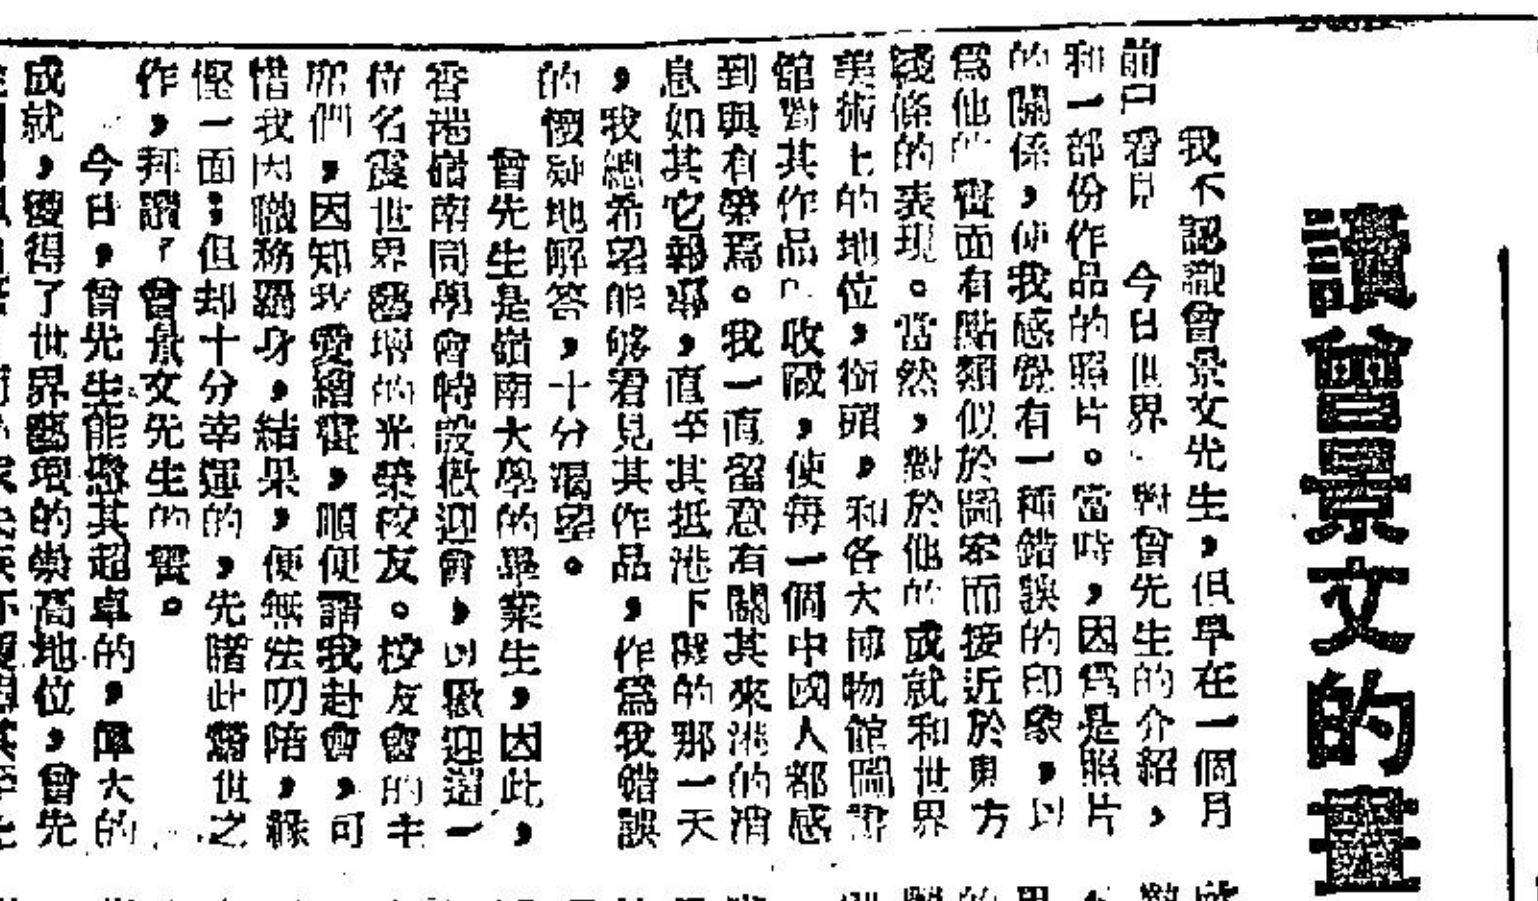 讀曾景文的畫
我不認識曾景文先生，但早在一個月
前已看見「今日世界」對曾先生的介紹，
和一部份作品的照片。當時，因為是照片
的關係，使我感覺有一種錯誤的印象，以
為他的畫面有點類似於圖案而接近於東方
綫條的表現。當然，對於他的成就和世界
美術上的地位，銜頭，和各大博物館圖書
館對其作品的收藏，使每一個中國人都感
到與有榮焉。我一直留意有關其來港的消
息如其它報導，直至其抵港下機的那一天
，我總希望能够看見其作品，作為我錯誤
的懷疑地解答，十分渴望。
曾先生是嶺南大學的畢業生，因此，
香港嶺南同學會特設歡迎會，以歡迎這一
位名震世界藝壇的光榮校友。校友會的主
席們，因知我愛繪畫，順便請我赴會，可
惜我因職務羈身，結果，便無法叨陪，緣
慳一面；但却十分幸運的，先睹此驚世之
作，拜讀了曾景文先生的畫。
今日，曾先生能憑其超卓的，偉大的
成就，獲得了世界藝壇的崇高地位，曾先